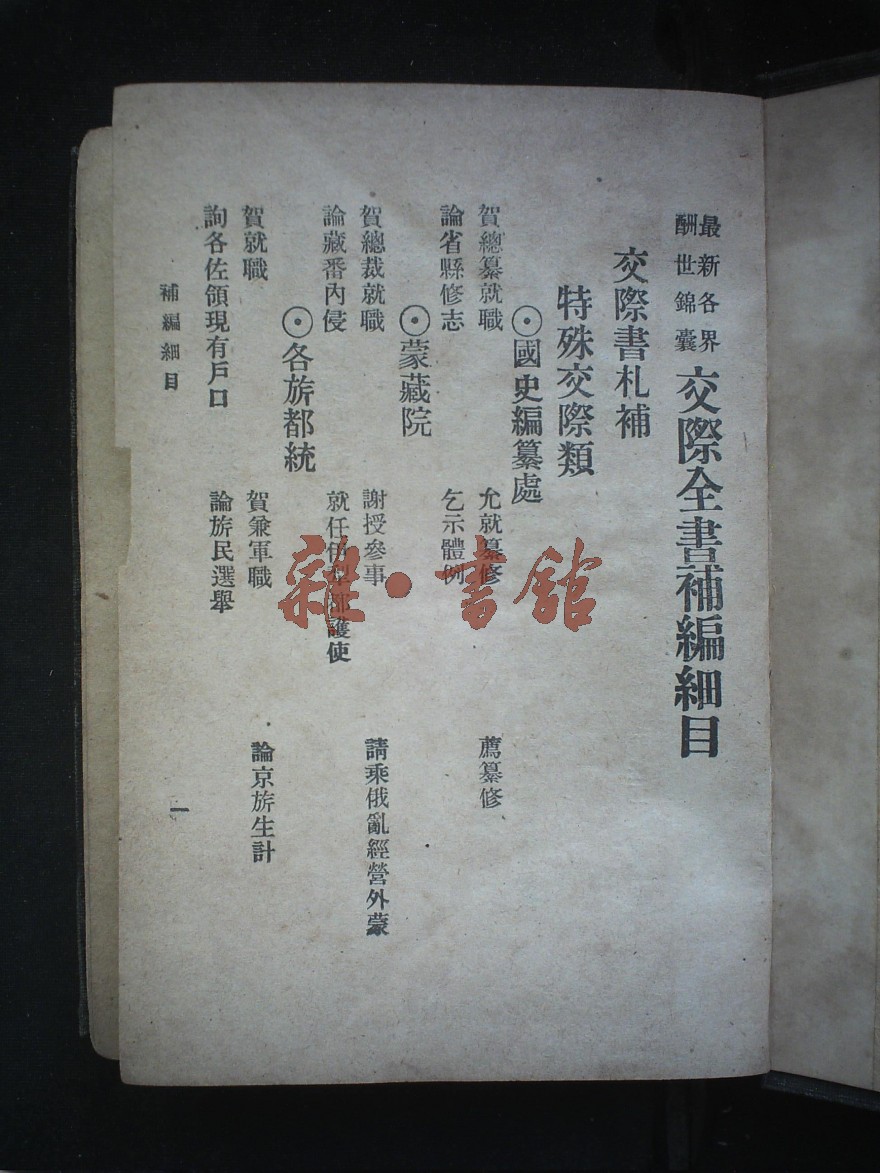 最新各界
酬世錦囊
交際全書補編細目
交際書札補
特殊交際類
⊙國史編纂處
賀總纂就職 允就纂修 薦纂修
論省縣修志 乞示體例
⊙蒙藏院
賀總裁就職 謝授參事 請乘俄亂經營外蒙
論藏番內侵 就任伊犁都護使
⊙各旂都統
賀就職 賀兼軍職 論京旂生計
詢各佐領現有戶口 論旂民選舉
補編細目
一
雜·書館